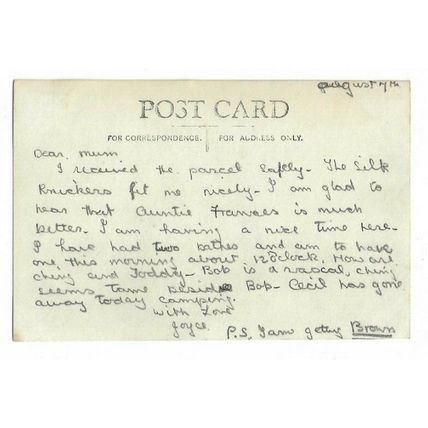 August 7th
POST CARD
FOR CORRESPONDENCE. FOR ADDRESS ONLY.
Dear Mum,
I received the parcel safely - The Silk
Knickers fit me nicely - I am glad to
hear that Auntie Frances is much
better - I am having a nice time here -
I have had two bathes and aim to have
one this morning about 12 O'clock, How are
ching and Toddy - Bob is a rascal, ching
seems tame beside Bob - Cecil has gone
away today camping.
With Love
Joyce
P.S. I am getting Brown